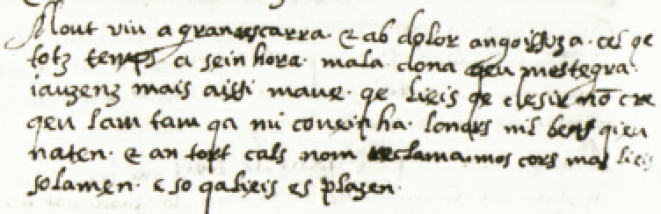 Mout viu a gran escarra. & ab dolor angoissoza. cel qe
totz temps a seinhora. mala dona qeu mestegra.
iauzenz mais aissi mave. qe lieis qe desir nō cre
qeu lam tam qa mi coveinha. lonors nil bens qieu
naten. & an tort cals nom reclama. mos cors mas lieis
solamen. e so qalieis es plazen.